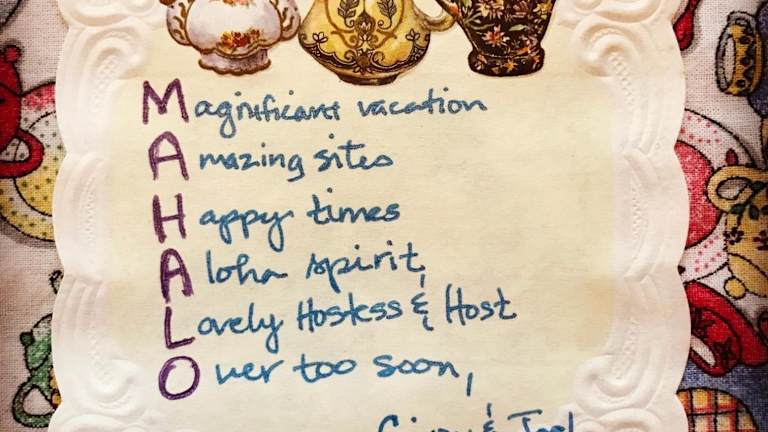 Magnificant vacation
Amazing sites
Happy times
Aloha spirit
Lovely Hostess & Host
Over too soon,
&